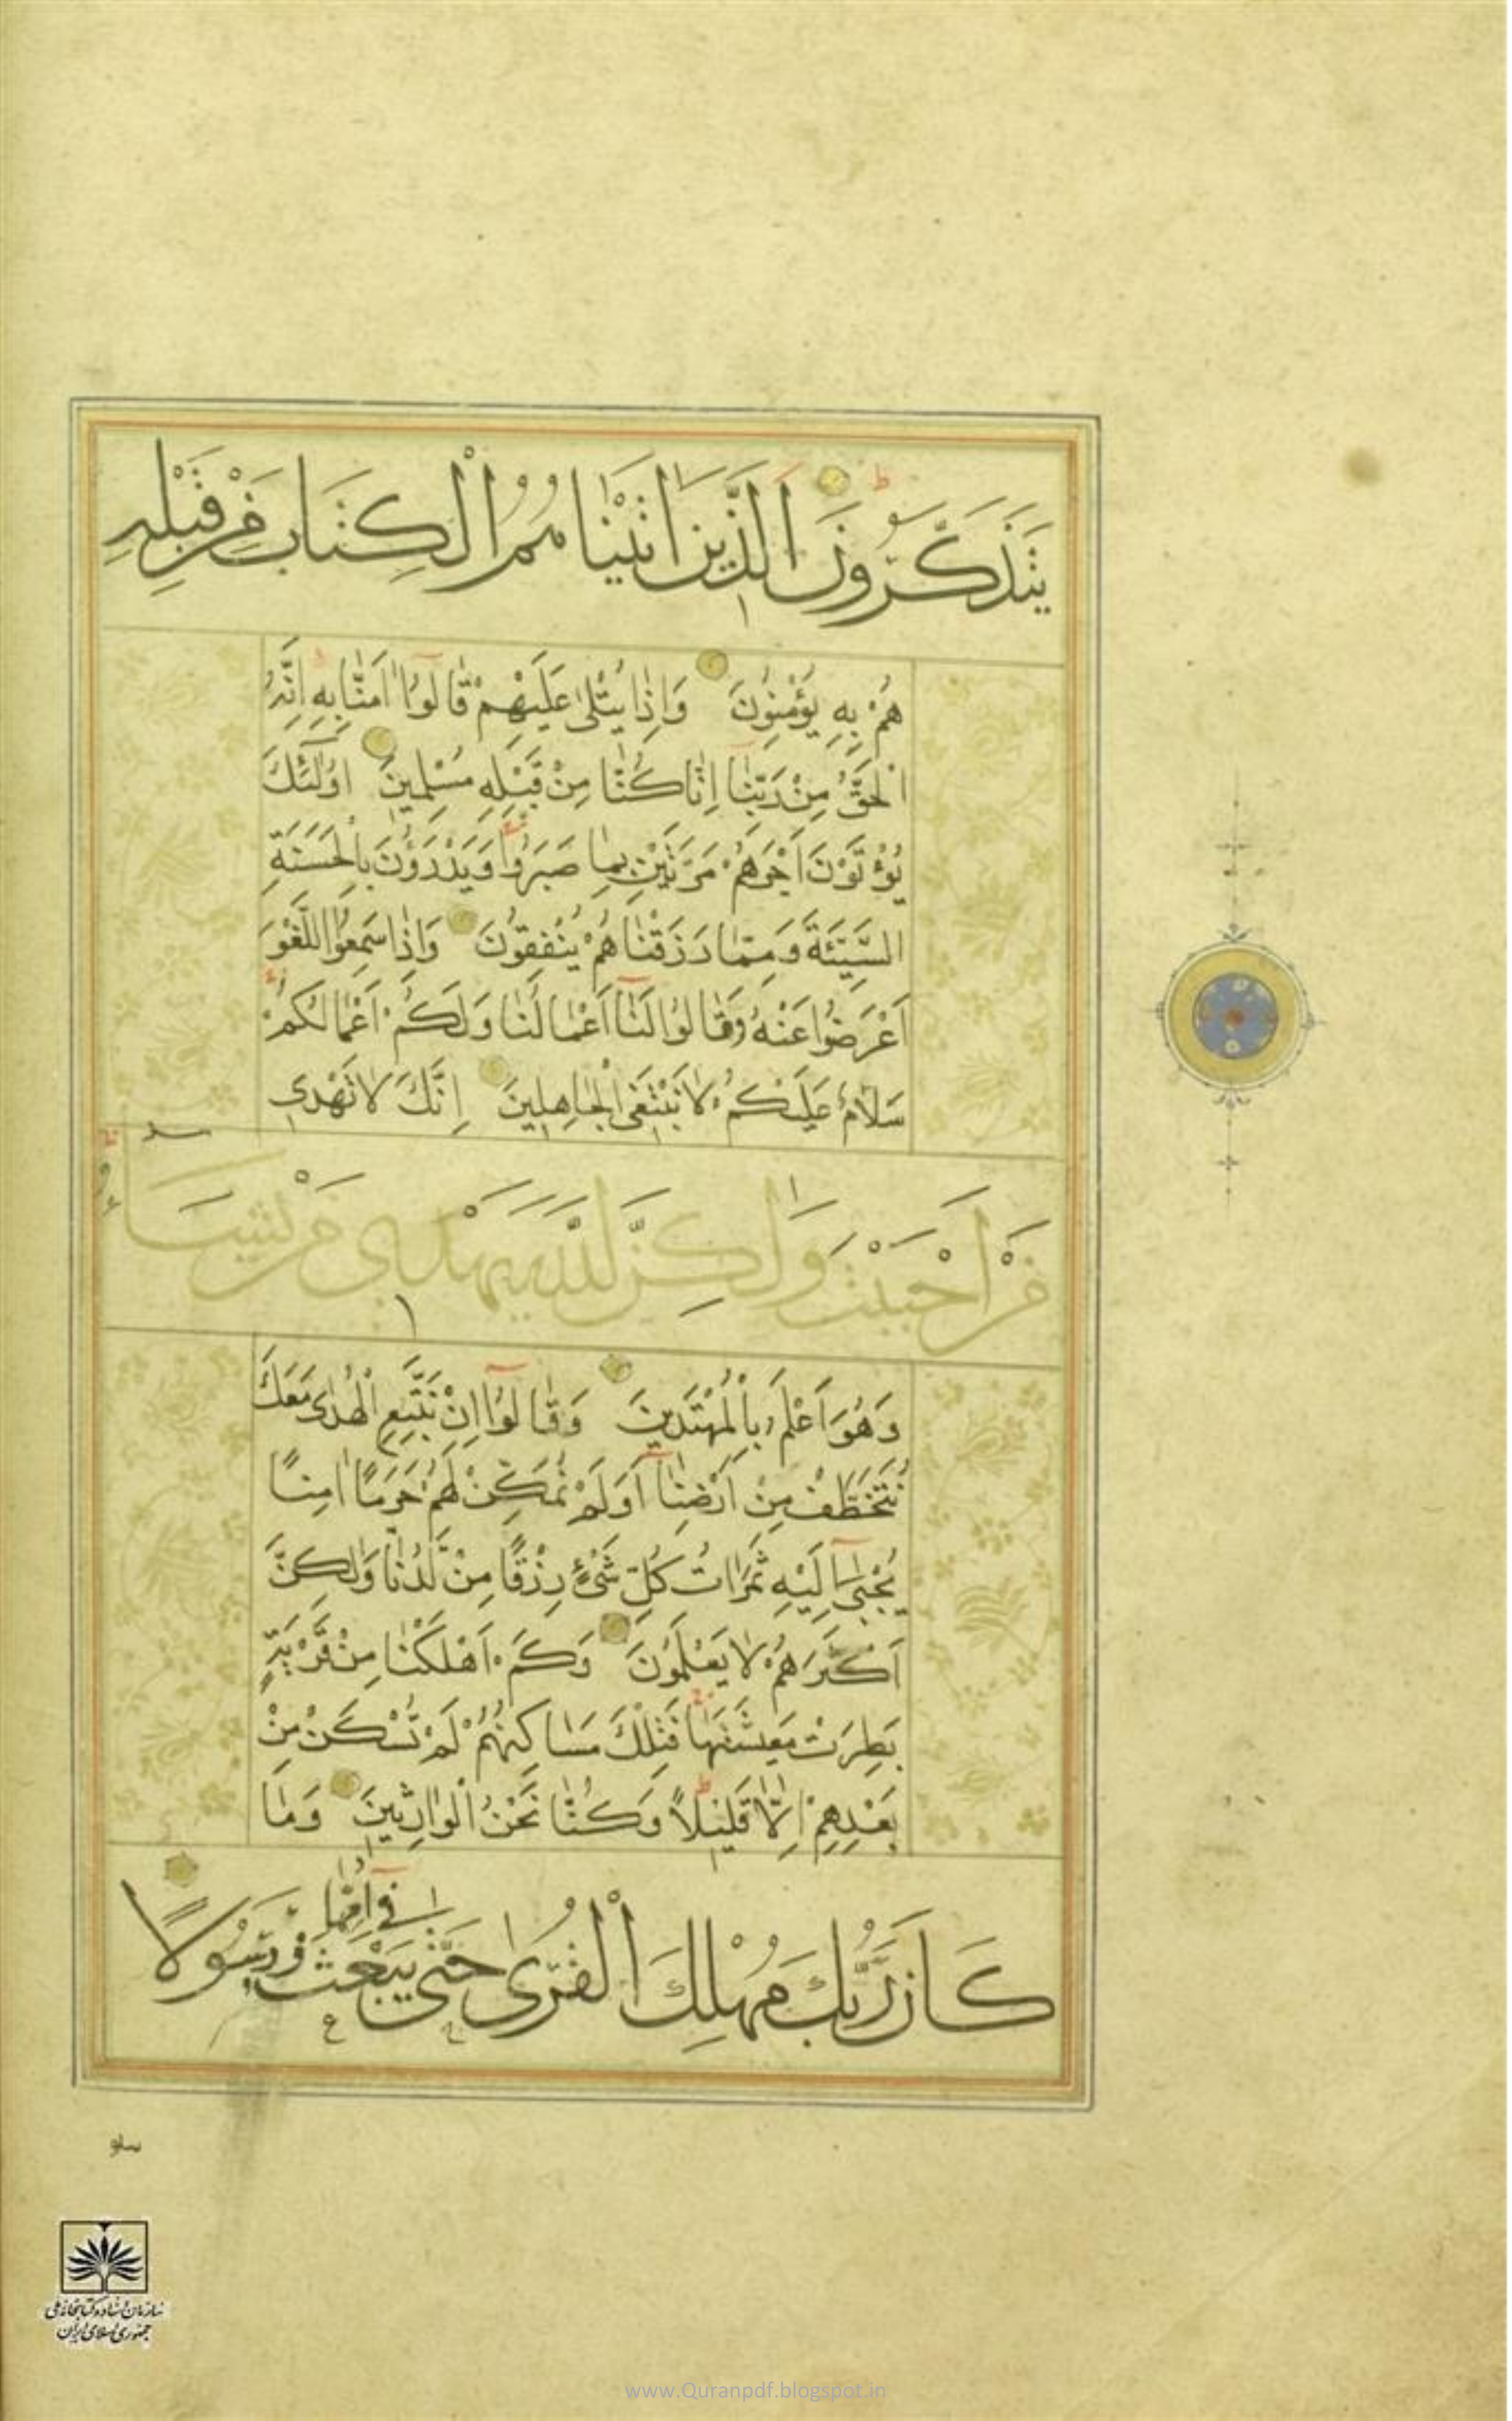 يَتَذَكَّرُونَ اَلَّذِينَ اٰتَيْنَاهُمُ الْكِتَابَ مِنْ قَبْلِهِ
هُمْ بِهِ يُؤْمِنُونَ وَاِذَا يُتْلٰى عَلَيْهِمْ قَالُوٓا اٰمَنَّا بِهِ اِنَّهُ
الْحَقُّ مِنْ رَبِّنَآ اِنَّا كُنَّا مِنْ قَبْلِهِ مُسْلِمِينَ اُولٰٓئِكَ
يُؤْتَوْنَ اَجْرَهُمْ مَرَّتَيْنِ بِمَا صَبَرُوا وَيَدْرَؤُنَ بِالْحَسَنَةِ
السَّيِّئَةَ وَمِمَّا رَزَقْنَاهُمْ يُنْفِقُونَ وَاِذَا سَمِعُوا اللَّغْوَ
اَعْرَضُوا عَنْهُ وَقَالُوا لَنَآ اَعْمَالُنَا وَلَكُمْ اَعْمَالُكُمْ
سَلَامٌ عَلَيْكُمْ لَا نَبْتَغِى الْجَاهِلِينَ اِنَّكَ لَا تَهْدِى
مَنْ اَحْبَبْتَ وَلٰكِنَّ اللّٰهَ يَهْدِى مَنْ يَشَاءُ
وَهُوَ اَعْلَمُ بِالْمُهْتَدِينَ وَقَالُوٓا اِنْ نَتَّبِعِ الْهُدٰى مَعَكَ
نُتَخَطَّفْ مِنْ اَرْضِنَآ اَوَلَمْ نُمَكِّنْ لَهُمْ حَرَمًا اٰمِنًا
يُجْبٰىٓ اِلَيْهِ ثَمَرَاتُ كُلِّ شَىْءٍ رِزْقًا مِنْ لَدُنَّا وَلٰكِنَّ
اَكْثَرَهُمْ لَا يَعْلَمُونَ وَكَمْ اَهْلَكْنَا مِنْ قَرْيَةٍ
بَطِرَتْ مَعِيشَتَهَا فَتِلْكَ مَسَاكِنُهُمْ لَمْ تُسْكَنْ مِنْ
بَعْدِهِمْ اِلَّا قَلِيلًا وَكُنَّا نَحْنُ الْوَارِثِينَ وَمَا
كَانَ رَبُّكَ مُهْلِكَ الْقُرٰى حَتّٰى يَبْعَثَ فِىٓ اُمِّهَا رَسُولًا
سازمان اسناد و کتابخانه ملی
جمهوری اسلامی ایران
www.Quranpdf.blogspot.in